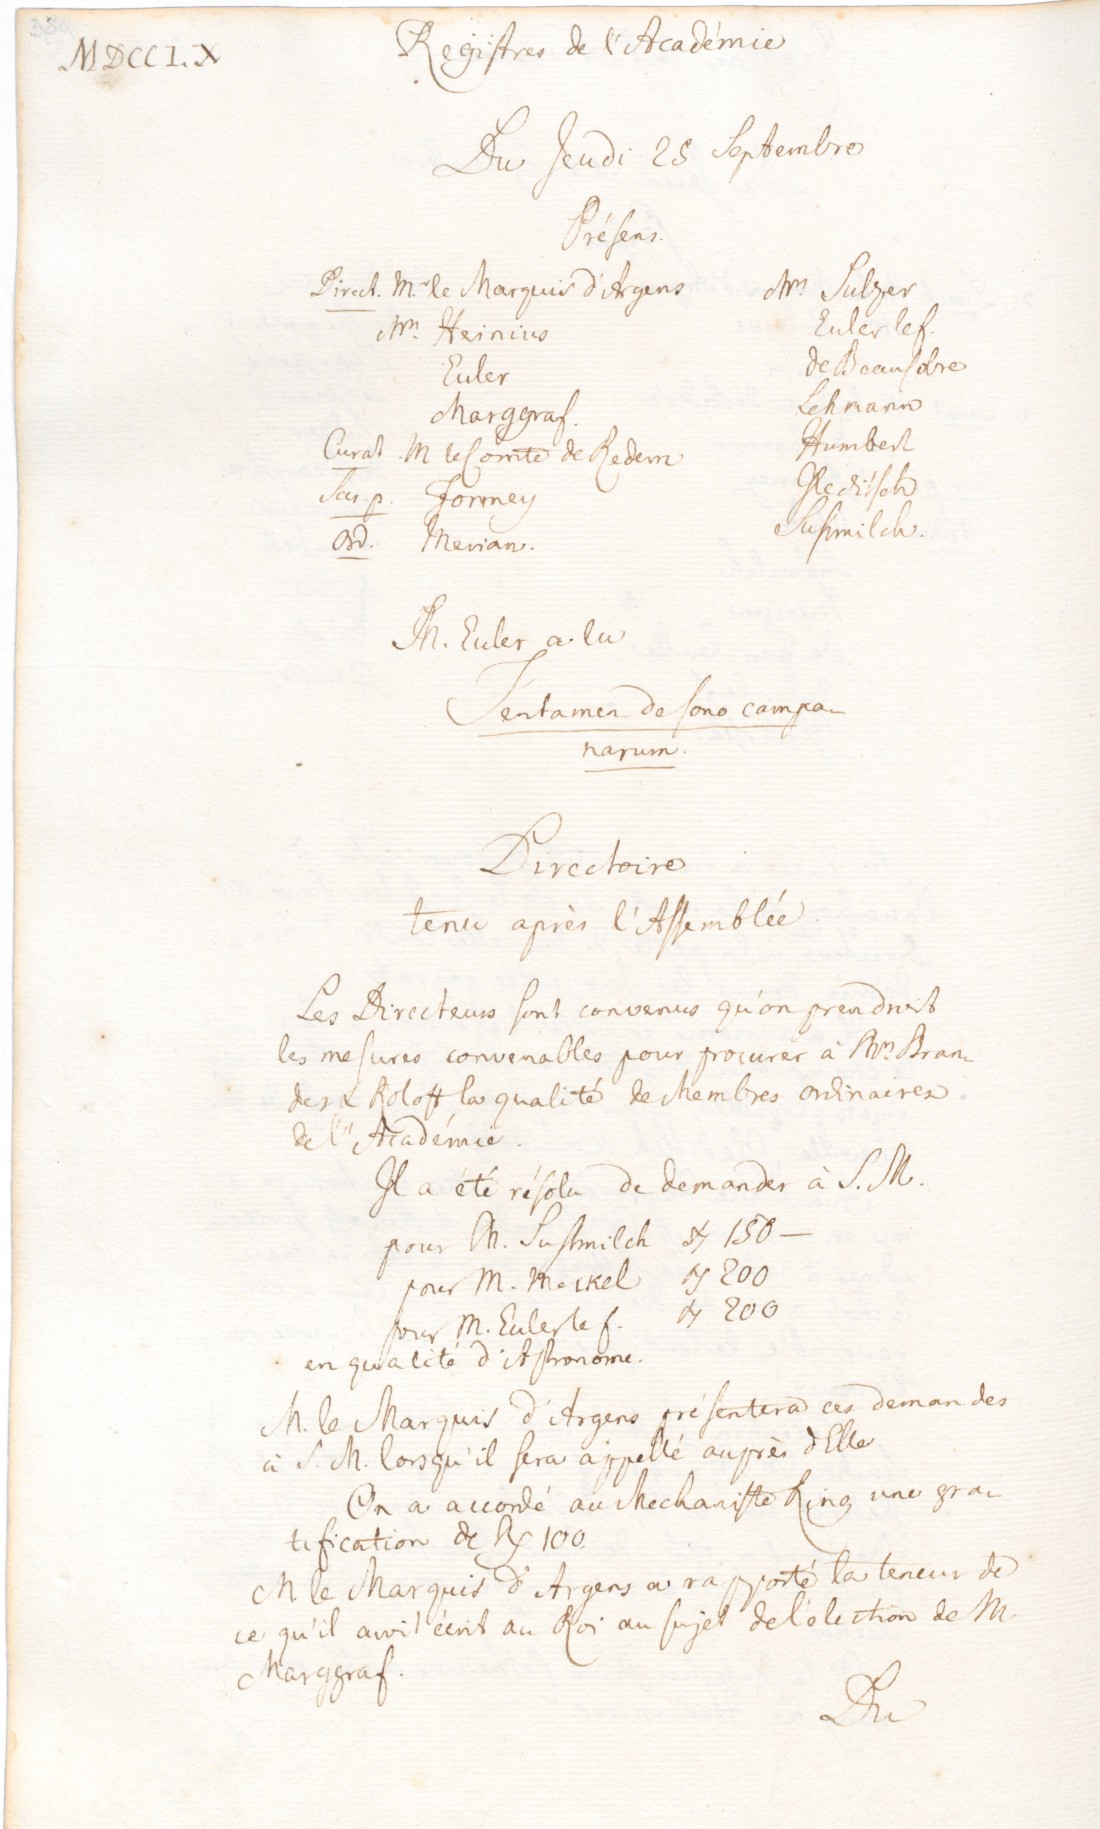 MDCCLX
Registres de l'Académie
Du Jeudi 25 Septembre
Présens.
Direct. Mr. le Marquis d'Argens
Mrs. Heinius
Euler
Marggraf.
Curat. M le Comte de Redern
Sec. p. Formey
Ord. Merian.
Mrs. Sulzer
Euler le f.
de Beausobre
Lehmann
Humbert
Gleditsch
Susmilch.
M. Euler a lu
Tentamen de sono campa-
narum.
Directoire
tenu après l'Assemblée
Les Directeurs sont convenus qu'on prendroit
les mesures convenables pour procurer à Mrs Bran-
des & Roloff la qualité de Membres ordinaires
de l'Académie.
Il a été résolu de demander à S. M.
pour M. Susmilch 150 —
pour M. Meckel 200
pour M. Euler le f. 200
en qualité d'Astronome.
M. le Marquis d'Argens présentera ces demandes
à S. M. lorsqu'il sera appellé auprès d'Elle
On a accordé au Mechaniste Ring une gra-
tification de 100
M. le Marquis d'Argens a rapporté la teneur de
ce qu'il avoit écrit au Roi au sujet de l'élection de M.
Marggraf.
Du